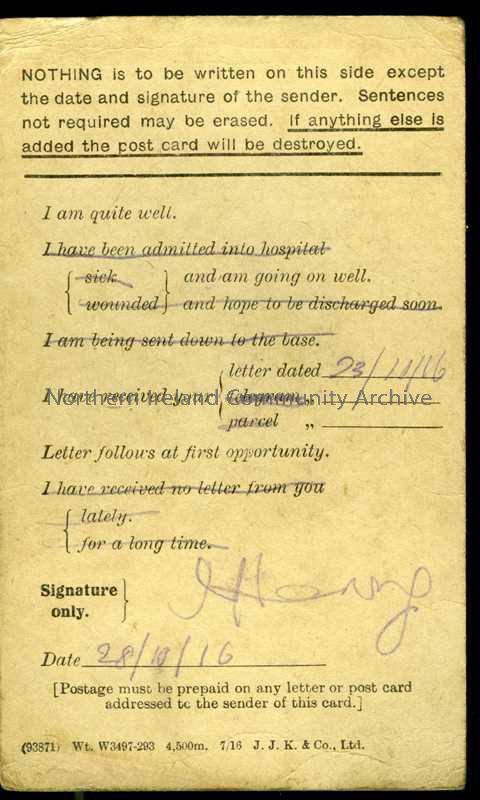 NOTHING is to be written on this side except
the date and signature of the sender. Sentences
not required may be erased. If anything else is
added the post card will be destroyed.
I am quite well.
I have been admitted into hospital
sick and am going on well.
wounded and hope to be discharged soon.
I am being sent down to the base.
letter dated 23/10/16
I have received your telegram „
parcel „
Northern Ireland Community Archive
Letter follows at first opportunity.
I have received no letter from you
lately.
for a long time.
Signature
only.
Date 28/10/16
[Postage must be prepaid on any letter or post card
addressed to the sender of this card.]
(93871) Wt. W3497-293 4,500m. 7/16 J. J. K. & Co., Ltd.